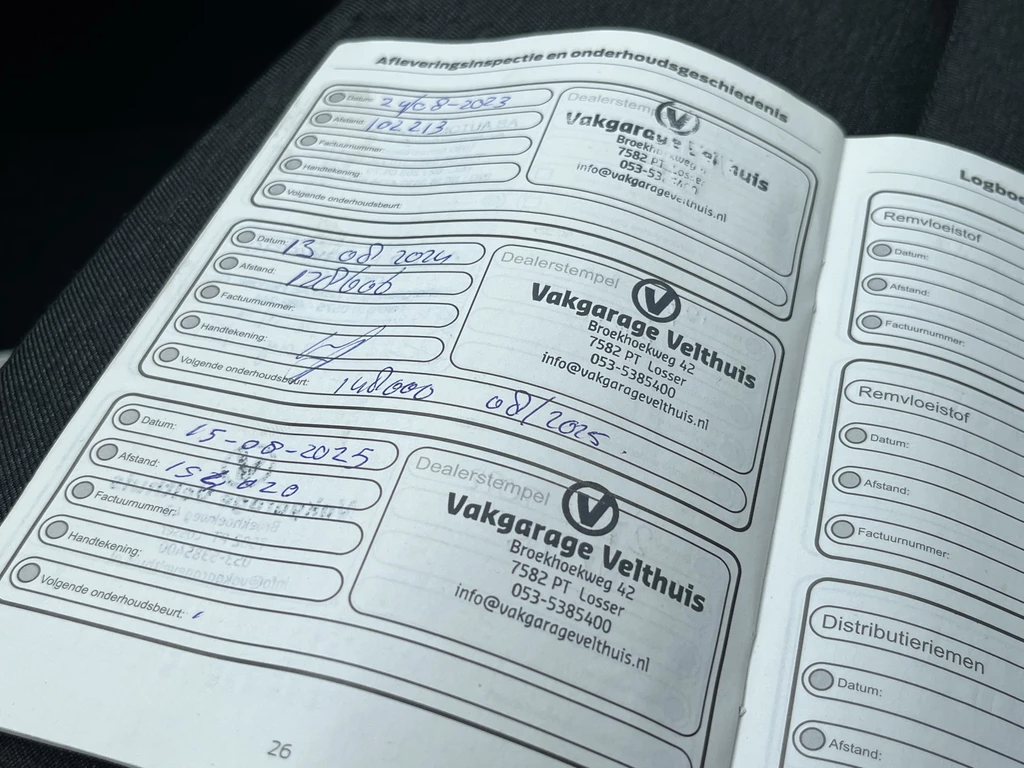 Afleveringsinspectie en onderhoudsgeschiedenis
Datum: 29/08-2023
Afstand: 102213
Factuurnummer:
Handtekening:
Volgende onderhoudsbeurt:
Dealerstempel
Vakgarage Velthuis
Broekhoekweg
7582 PT Losser
053-53
info@vakgaragevelthuis.nl
Datum: 13 08 2024
Afstand: 128606
Factuurnummer:
Handtekening:
Volgende onderhoudsbeurt: 148000 08/2025
Dealerstempel
Vakgarage Velthuis
Broekhoekweg 42
7582 PT Losser
053-5385400
info@vakgaragevelthuis.nl
Datum: 15-08-2025
Afstand:
Factuurnummer:
Handtekening:
Volgende onderhoudsbeurt:
Dealerstempel
Vakgarage Velthuis
Broekhoekweg 42
7582 PT Losser
053-5385400
info@vakgaragevelthuis.nl
26
Remvloeistof
Datum:
Afstand:
Factuurnummer:
Remvloeistof
Datum:
Afstand:
Factuurnummer:
Distributieriemen
Datum:
Afstand: